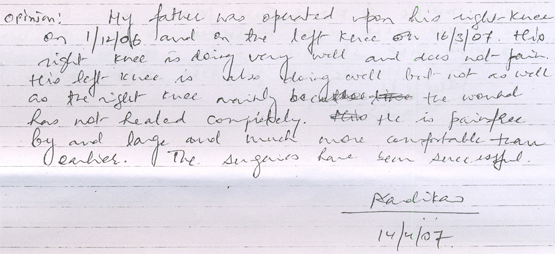 Opinion: My father was operated upon his right-knee
on 1/12/06 and on the left knee on 16/3/07. His
right knee is doing very well and does not pain.
His left knee is also doing well but not as well
as the right knee mainly because the wound
has not healed completely. He is painfree
by and large and much more comfortable than
earlier. The surgeries have been successful.
14/4/07